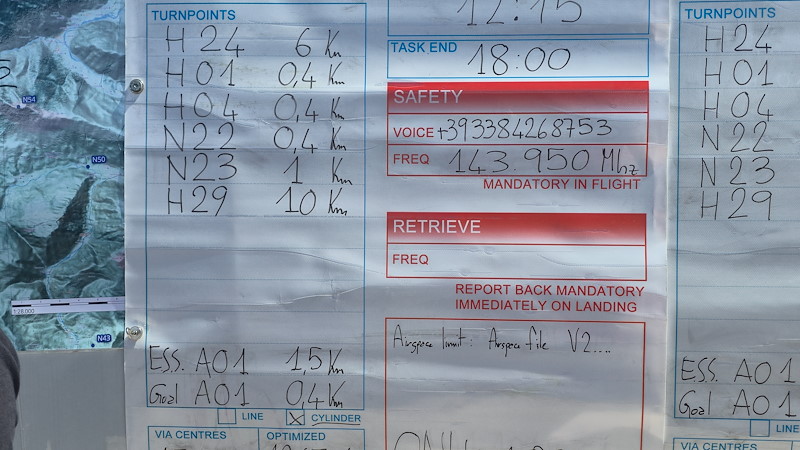 N54
N50
1:28.000
N43
TURNPOINTS
H 24 6 Km
H 01 0,4 Km
H 04 0,4 Km
N 22 0,4 Km
N 23 1 Km
H 29 10 Km
ESS. A01 1,5 Km
Goal A01 0,4 Km
LINE X CYLINDER
VIA CENTRES OPTIMIZED
12:15
TASK END 18:00
SAFETY
VOICE +393384268753
FREQ 143.950 Mhz
MANDATORY IN FLIGHT
RETRIEVE
FREQ
REPORT BACK MANDATORY
IMMEDIATELY ON LANDING
Airspace limit: Airspace file V2....
TURNPOINTS
H 24
H 01
H 04
N 22
N 23
H 29
ESS. A01
Goal A01
LINE
VIA CENTRES